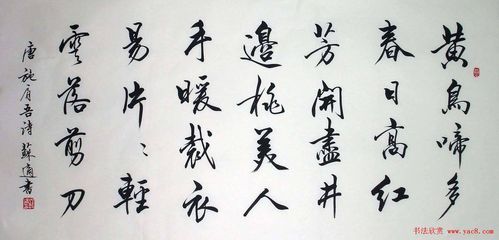 黄鳥啼多
春日高红
芳開盡井
邊桃美人
手暖裁衣
易片〻輕
雲落剪刀
唐施肩吾诗 蘇適書
书法欣赏 www.yac8.com